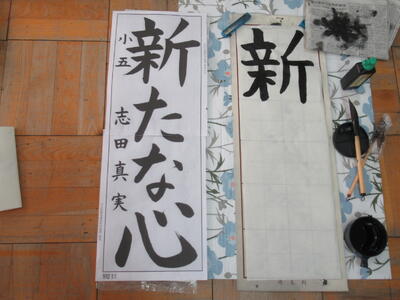 新たな心
小五 志田真実
新